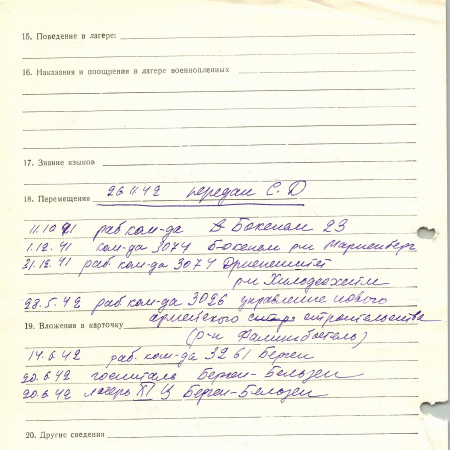 15. Поведение в лагере:
16. Наказания и поощрения в лагере военнопленных
17. Знание языков
18. Перемещения 26.11.42 передан С.Д
11.10.41 раб ком-да в Бокенем 23
1.12.41 ком-да 3074 Бокенем рн Мариенберг
31.12.41 раб ком-да 3074
рн Хильдесхейм
28.5.42 раб ком-да 3026 управление нового
армейского строительства
19. Вложения в карточку (р-н Фаллингбостель)
14.6.42 раб. ком-да 3261 Берген
20.6.42 госпиталь Берген-Бельзен
20.6.42 лагерь XI Ц Берген-Бельзен
20. Другие сведения